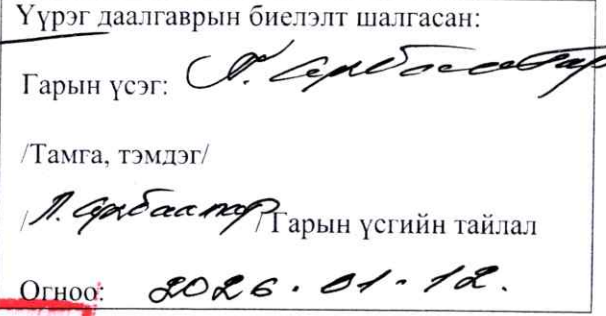 Үүрэг даалгаврын биелэлт шалгасан:
Гарын үсэг:
/Тамга, тэмдэг/
/ /Гарын үсгийн тайлал
Огноо: 2026.01.12.